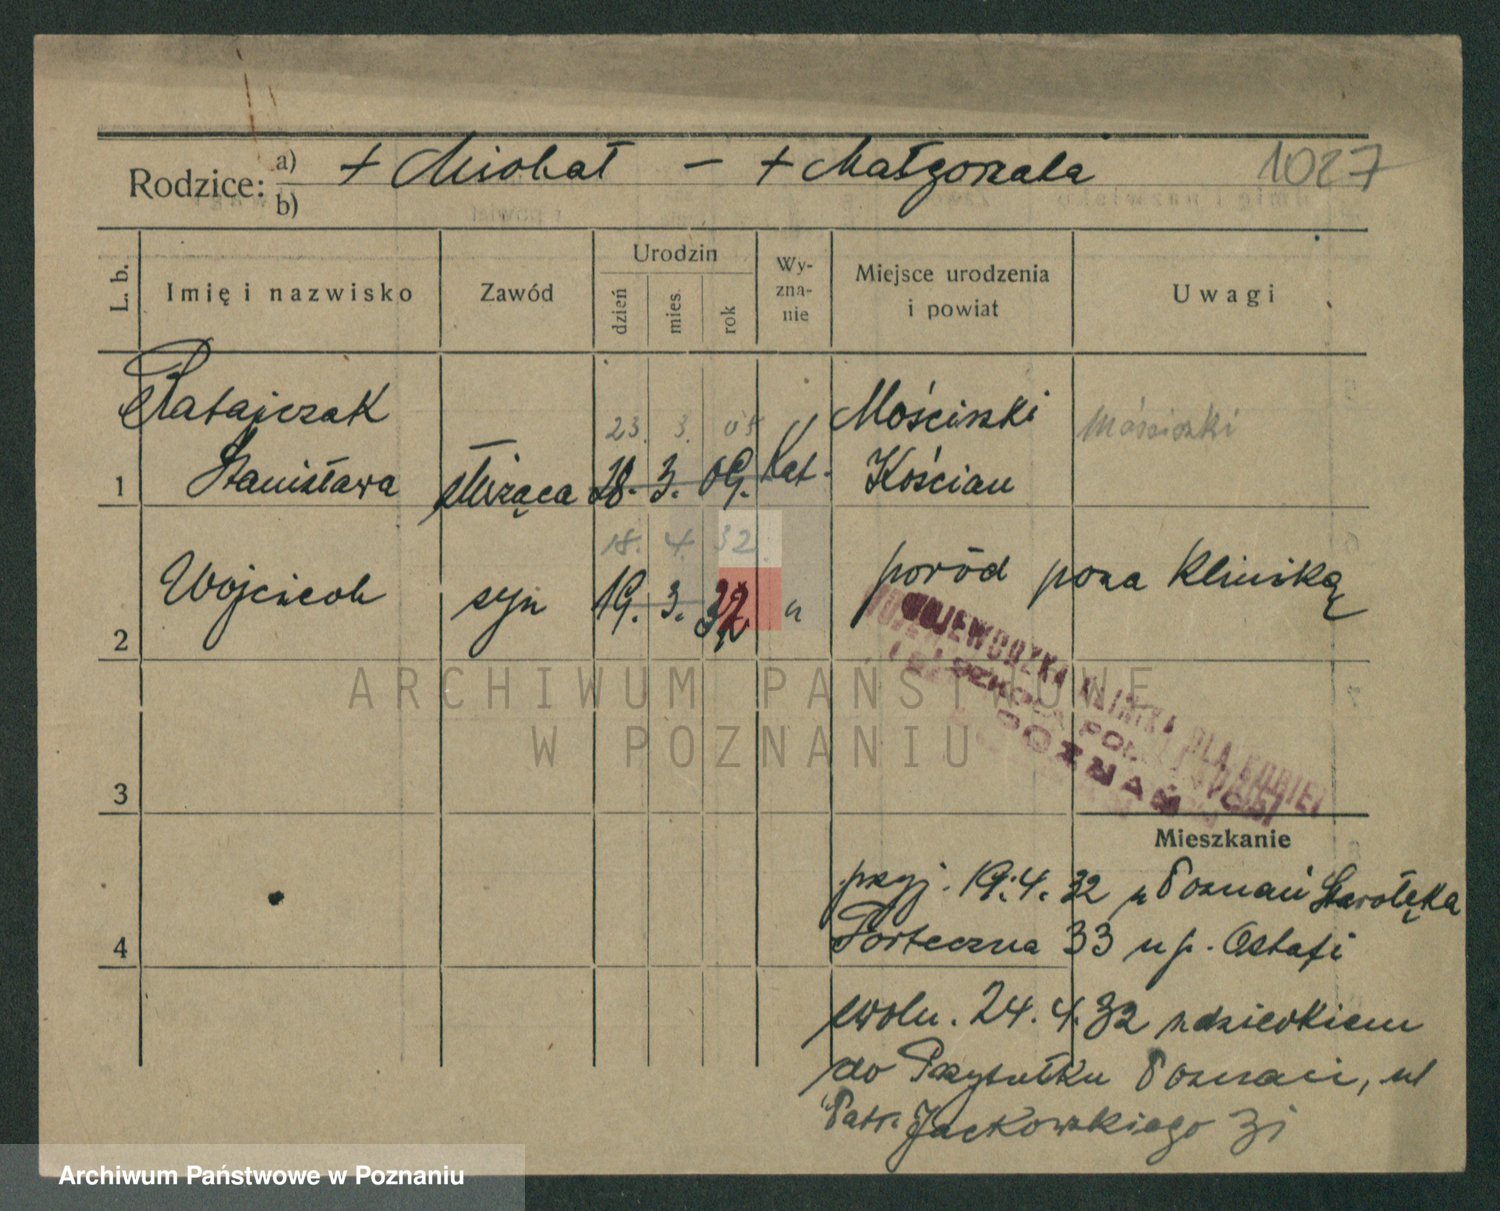 Rodzice: a) + Michał - + Małgorzata 1027
b)
L. b. Imię i nazwisko Zawód Urodzin Wy- Miejsce urodzenia Uwagi
dzień mies. rok zna- i powiat
nie
Ratajczak 23. 3. 05 Mościszki Mościszki
1 Stanisława służąca 28. 3. 09. Kat. Kościan
18. 4. 32.
Wojciech syn 19. 3. 32 " poród poza kliniką
2
WOJEWÓDZKA KLINIKA DLA KOBIET
I SZKOŁA POŁOŻNYCH
POZNAŃ
ARCHIWUM PAŃSTWOWE
W POZNANIU
3
Mieszkanie
przyj. 19.4.32 z Poznań Starołęka
4 Forteczna 33 u p.
zwoln. 24.4.32 z dzieckiem
do Przytułku Poznań, ul
Patr. Jackowskiego
Archiwum Państwowe w Poznaniu